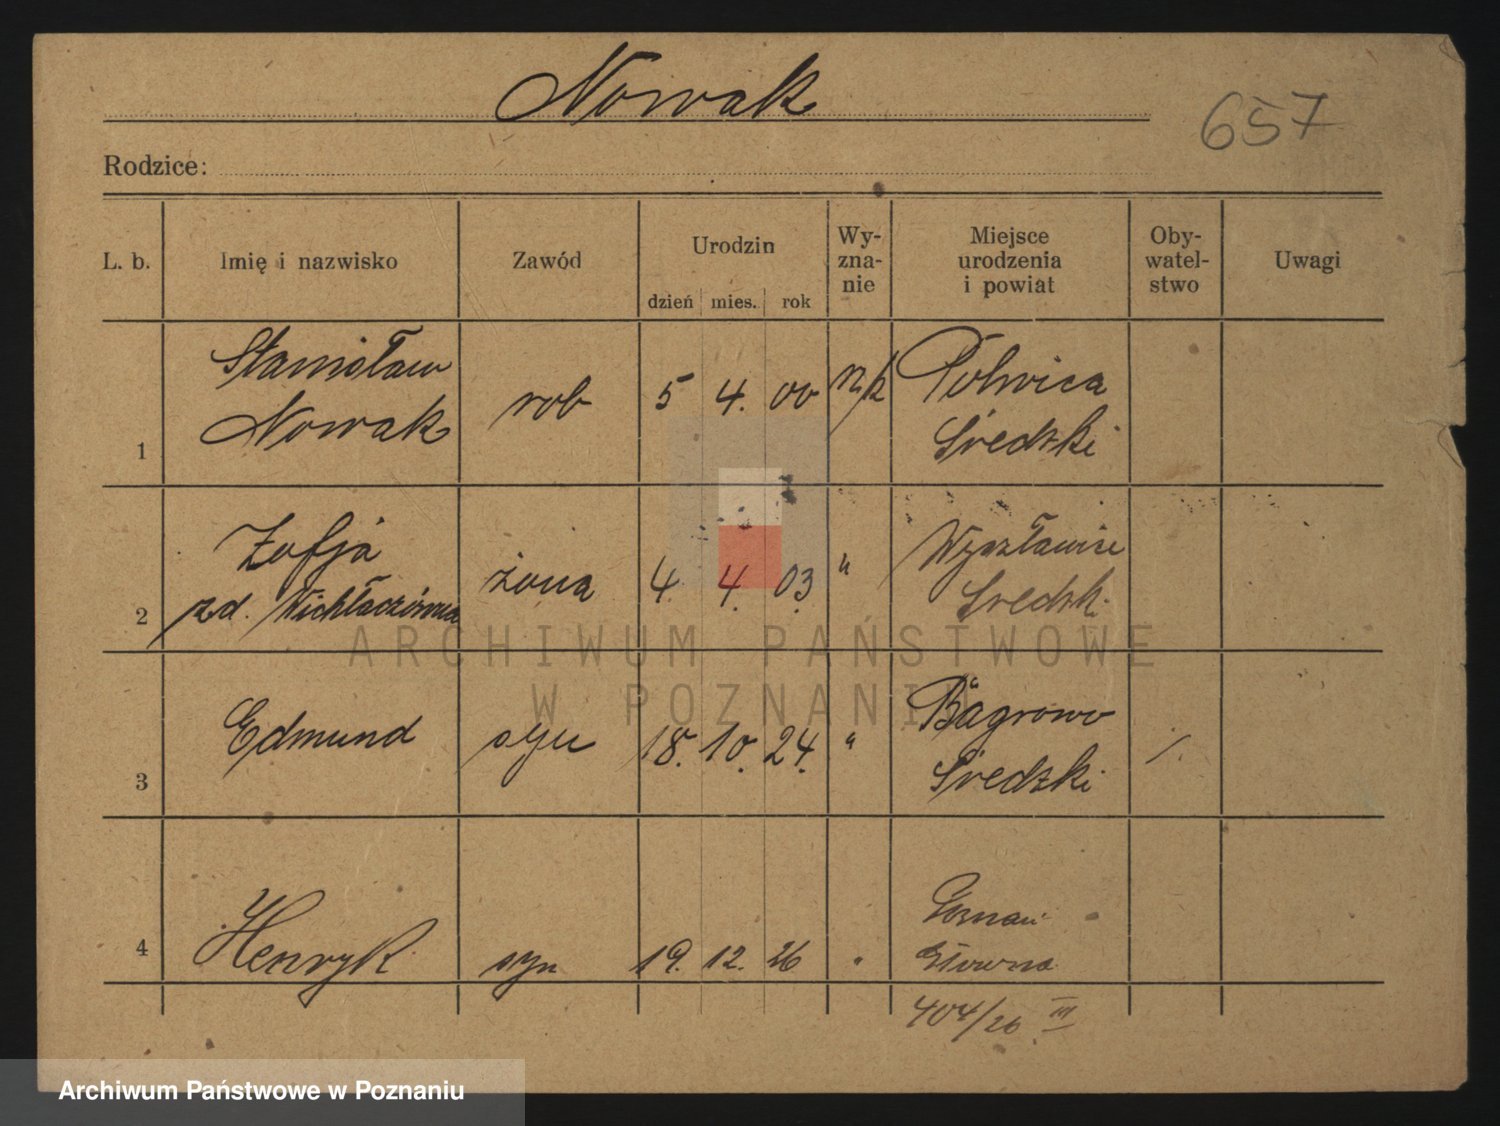 Nowak
657
Rodzice:
L. b. Imię i nazwisko Zawód Urodzin dzień mies. rok Wy-zna-nie Miejsce urodzenia i powiat Oby-watel-stwo Uwagi
1 Stanisław Nowak rob 5 4. 00 rz/k Polwica Średzki
2 Zofja zd. żona 4. 4. 03. " Średzk.
3 Edmund syn 18. 10. 24. " Bagrowo Średzki /.
4 Henryk syn 19. 12. 26 " Poznań Główna
404/26 III
ARCHIWUM PAŃSTWOWE
W POZNANIU
Archiwum Państwowe w Poznaniu